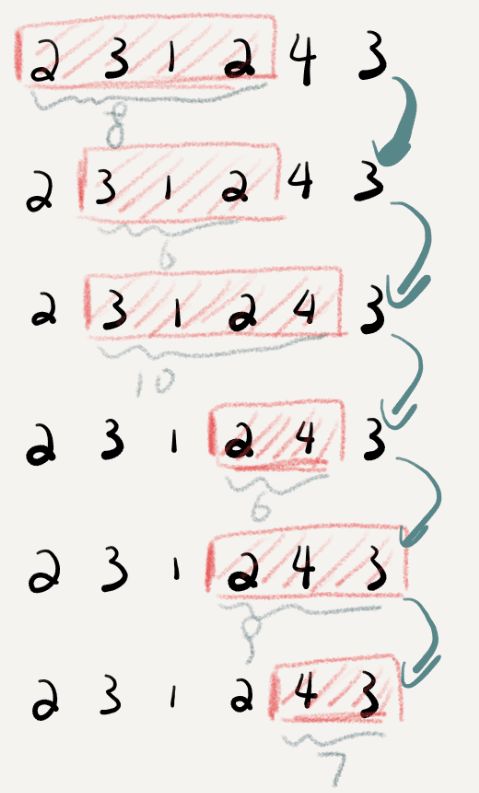 2 3 1 2 4 3
8
2 3 1 2 4 3
6
2 3 1 2 4 3
10
2 3 1 2 4 3
6
2 3 1 2 4 3
9
2 3 1 2 4 3
7